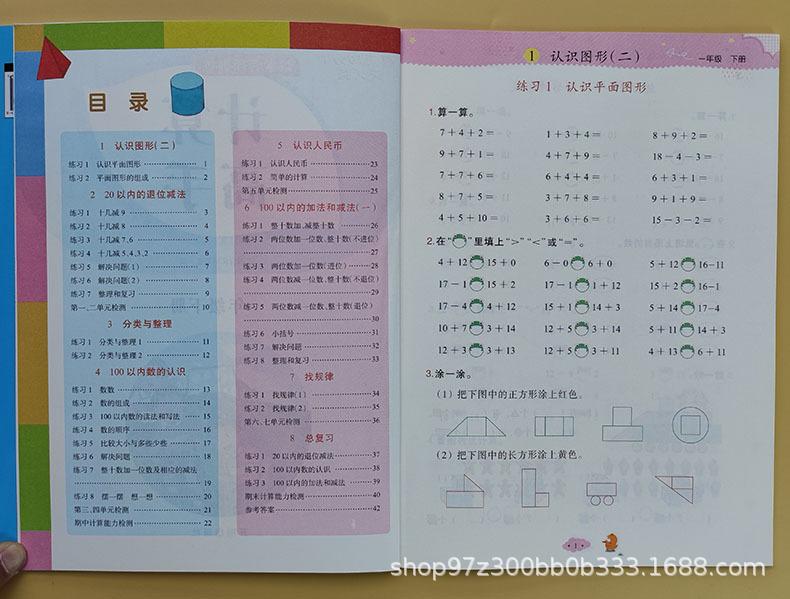 目 录
1 认识图形(二)
练习1 认识平面图形 1
练习2 平面图形的组成 2
2 20以内的退位减法
练习1 十几减9 3
练习2 十几减8 4
练习3 十几减7,6 5
练习4 十几减5,4,3,2 6
练习5 解决问题(1) 7
练习6 解决问题(2) 8
练习7 整理和复习 9
第一、二单元检测 10
3 分类与整理
练习1 分类与整理1 11
练习2 分类与整理2 12
4 100以内数的认识
练习1 数数 13
练习2 数的组成 14
练习3 100以内数的读法和写法 15
练习4 数的顺序 16
练习5 比较大小与多些少些 17
练习6 解决问题 18
练习7 整十数加一位数及相应的减法
19
练习8 摆一摆 想一想 20
第三、四单元检测 21
期中计算能力检测 22
5 认识人民币
练习1 认识人民币 23
练习2 简单的计算 24
第五单元检测 25
6 100以内的加法和减法(一)
练习1 整十数加、减整十数 26
练习2 两位数加一位数、整十数(不进位)
27
练习3 两位数加一位数(进位) 28
练习4 两位数减一位数、整十数(不退位)
29
练习5 两位数减一位数、整十数(退位)
30
练习6 小括号 31
练习7 解决问题 32
练习8 整理和复习 33
7 找规律
练习1 找规律(1) 34
练习2 找规律(2) 35
第六、七单元检测 36
8 总复习
练习1 20以内的退位减法 37
练习2 100以内数的认识 38
练习3 100以内的加法和减法 39
期末计算能力检测 40
参考答案 42
1 认识图形(二)
一年级 下册
练习1 认识平面图形
1.算一算。
7+4+2= 1+3+4= 8+9+2=
9+7+1= 4+7+9= 18-4-3=
7+7+6= 4+4+4= 6+3+1=
8+7+5= 3+7+8= 9+1+9=
4+5+10= 3+6+6= 15-3-2=
2.在“ ”里填上“>”“<”或“=”。
4+12 15+0 6-0 6+0 5+12 16-11
17-1 15+2 17-1 1+12 15+2 16-1
17-4 4+12 15+1 14+3 5+14 17-4
10+7 3+14 12+5 3+14 5+11 14+3
12+3 3+13 12+5 3+11 4+13 6+11
3.涂一涂。
(1)把下图中的正方形涂上红色。
(2)把下图中的长方形涂上黄色。
1
shop97z300bb0b333.1688.com